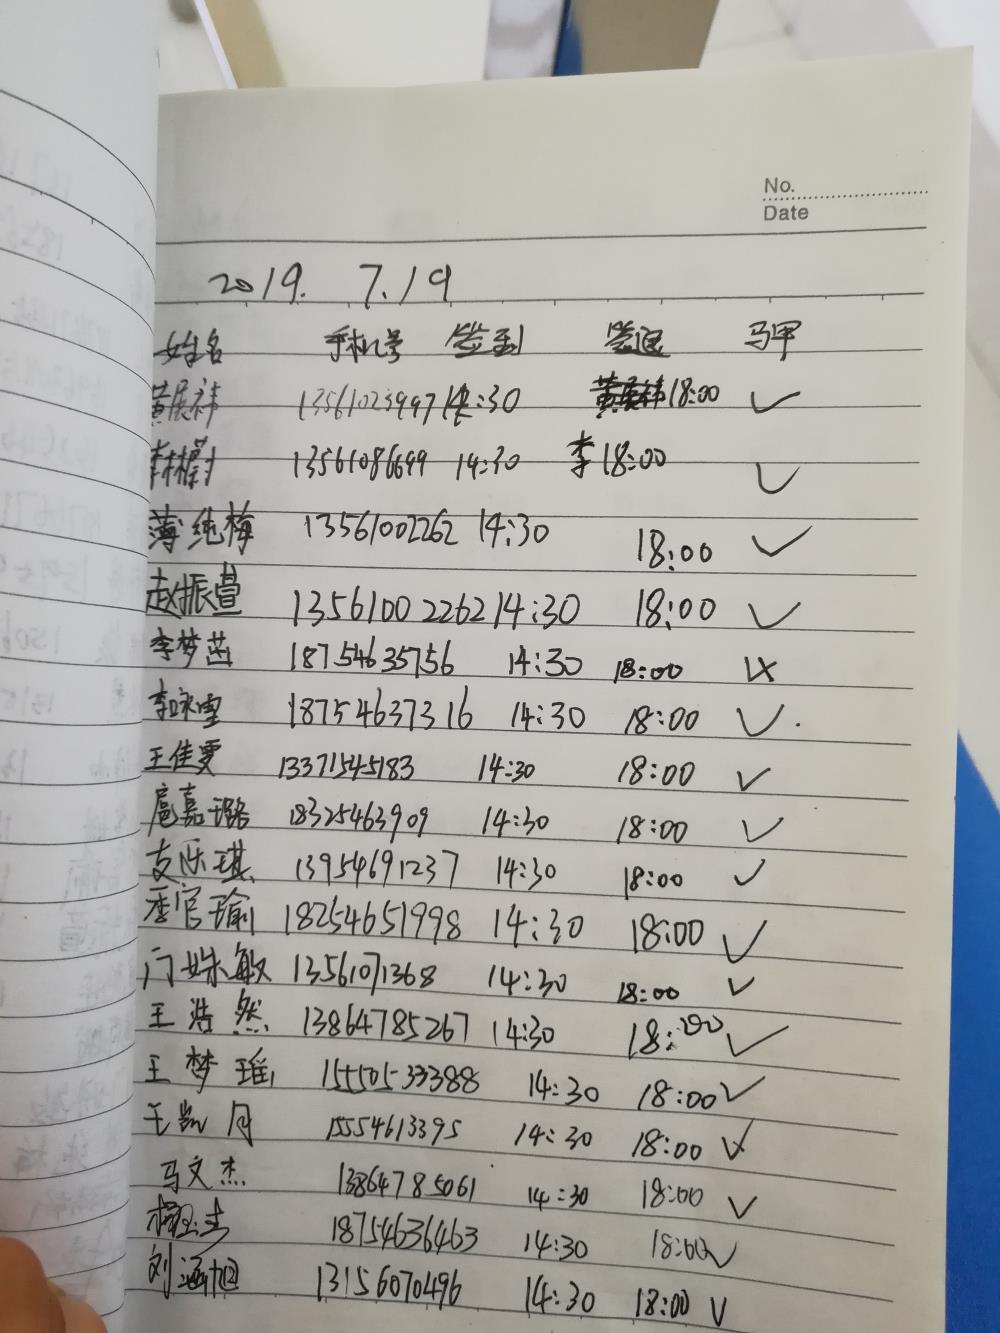 No.
Date
2019. 7.19
姓名 手机号 签到 签退 马甲
黄展祎 13561023997 14:30 18:00 ✓
李 13561086699 14:30 李 18:00 ✓
薄纯梅 13561002262 14:30 18:00 ✓
赵振萱 13561002262 14:30 18:00 ✓
李梦茜 18754635756 14:30 18:00
李咏雪 18754637316 14:30 18:00 ✓
王佳雯 13371545183 14:30 18:00 ✓
扈嘉璐 18325463909 14:30 18:00 ✓
支乐琪 13954691237 14:30 18:00 ✓
季官瑜 18254651998 14:30 18:00 ✓
门姝敏 13561071368 14:30 18:00 ✓
王浩然 13864785267 14:30 18:00 ✓
王梦瑶 15550533388 14:30 18:00 ✓
王凯月 15554613395 14:30 18:00
马文杰 13864785061 14:30 18:00 ✓
18754636463 14:30 18:00 ✓
刘涵旭 13156070496 14:30 18:00 ✓